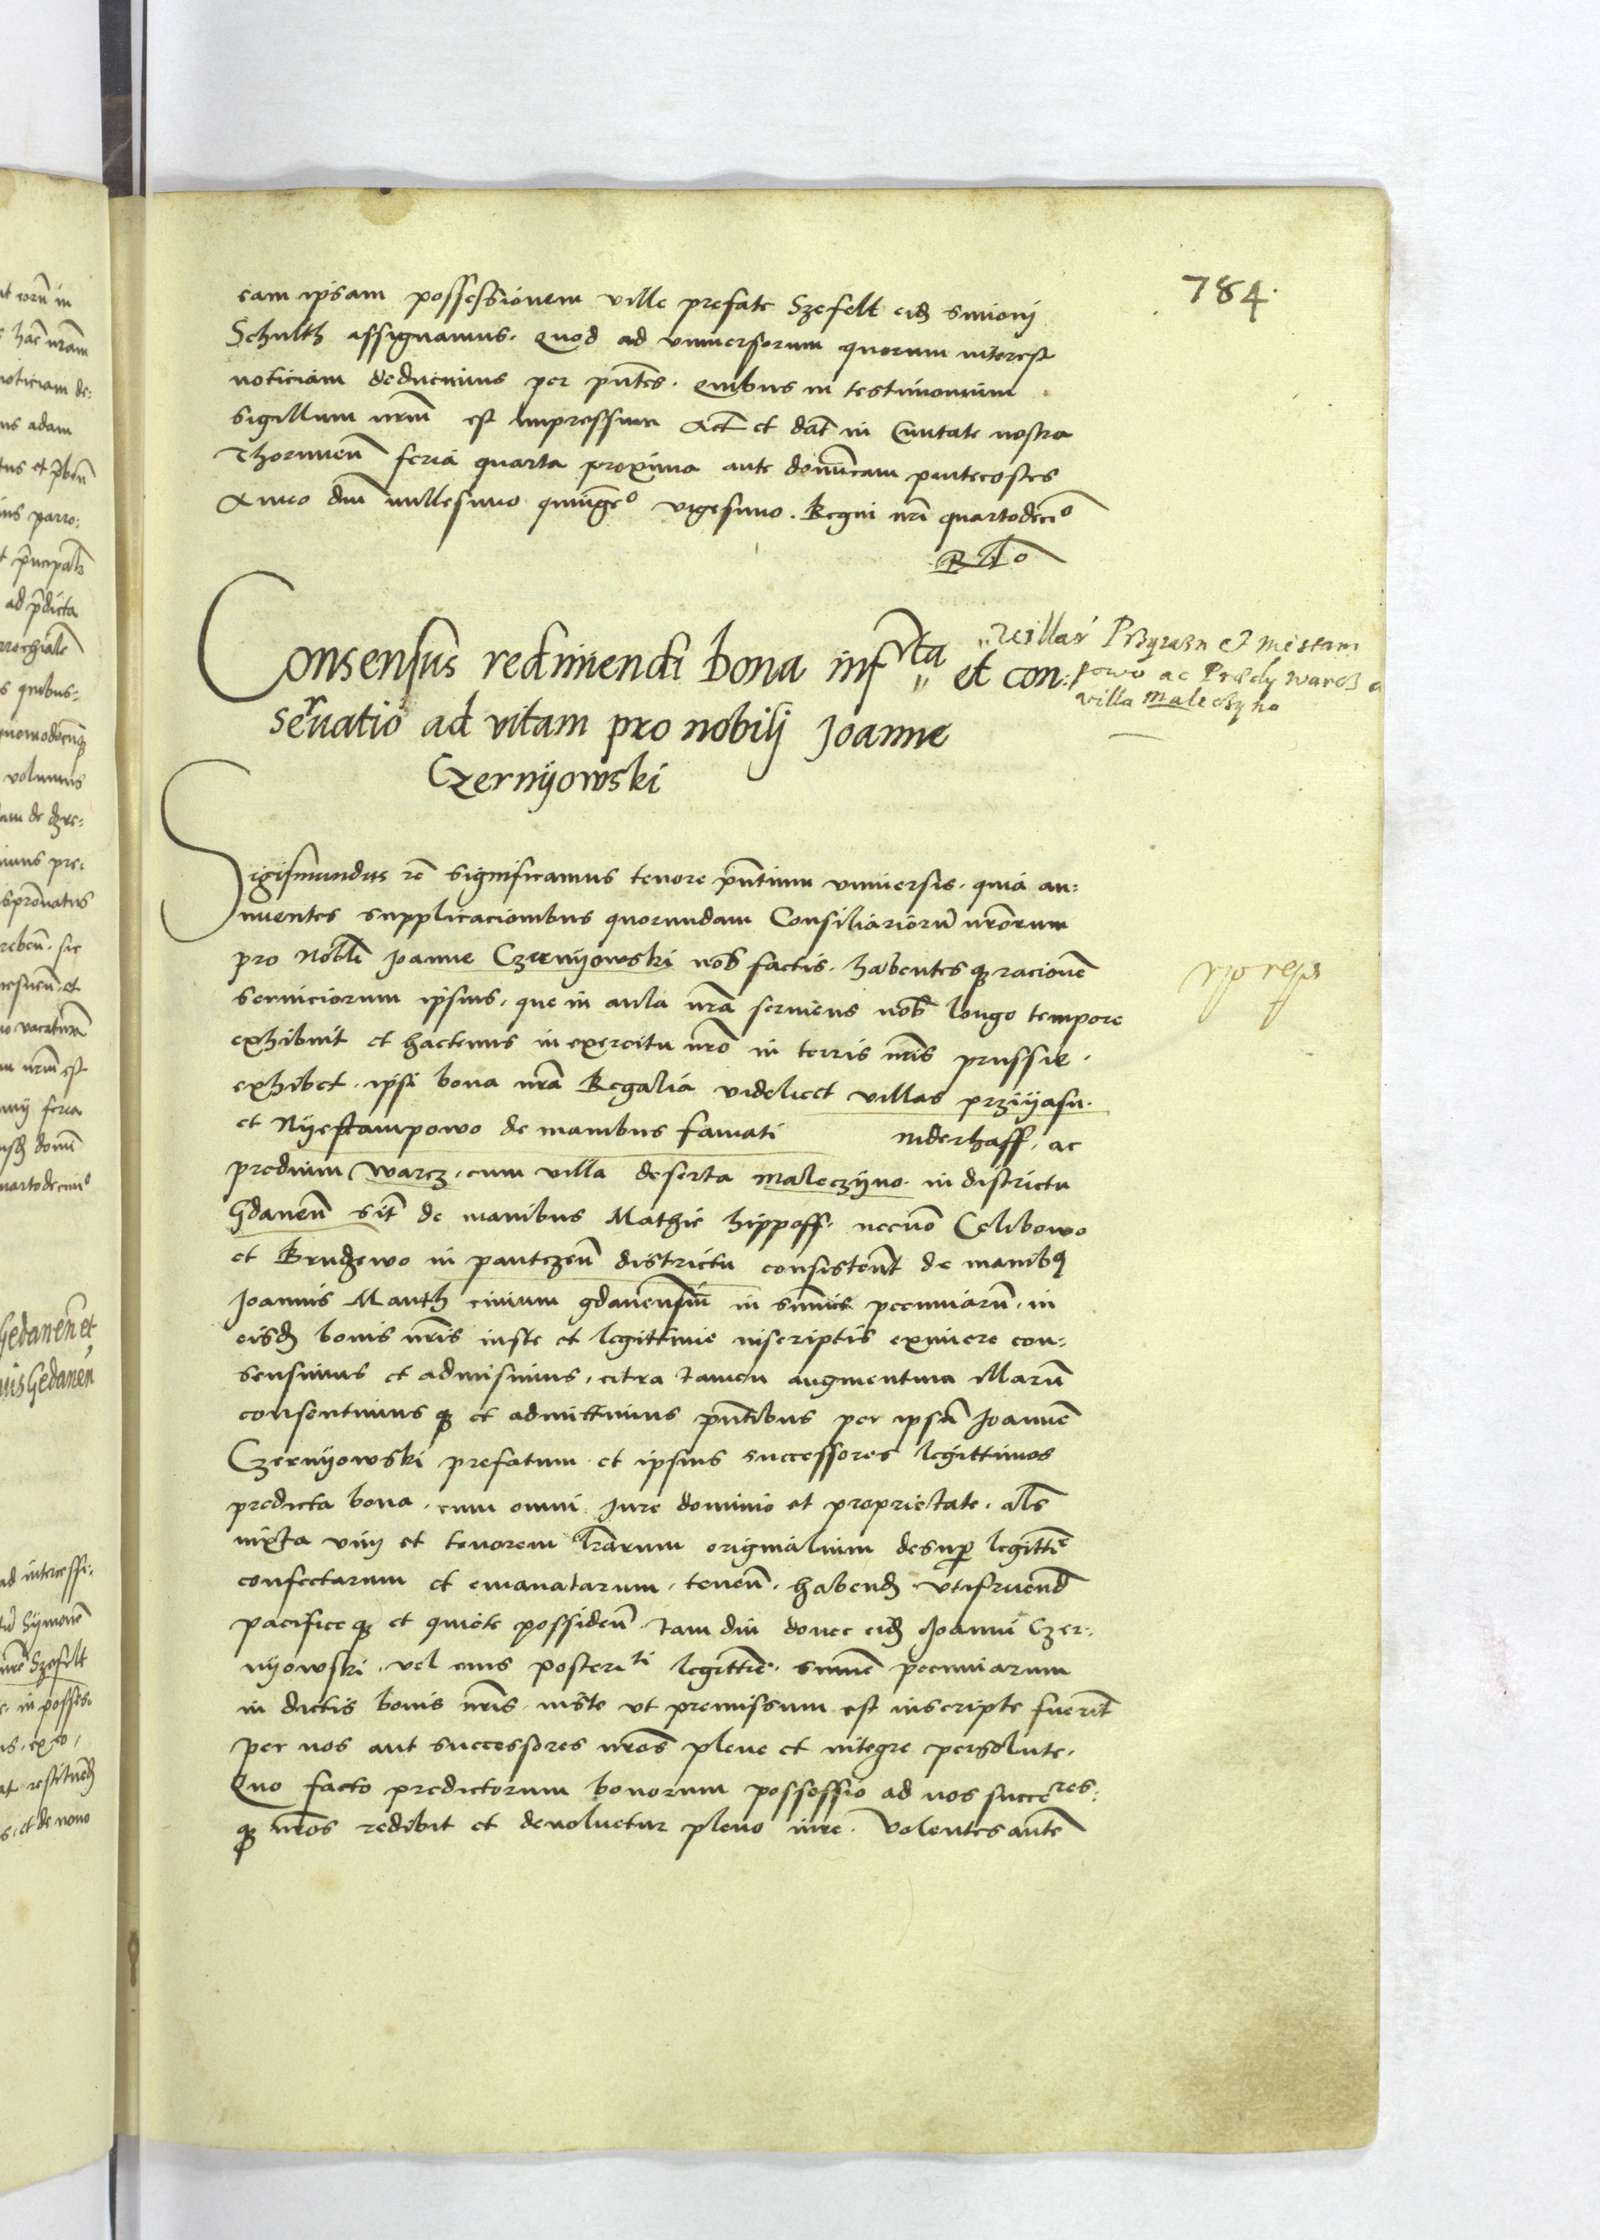 784.
eam ipsam possessionem ville prefate Szefelt eid Simonj
Schulth assignamus. Quod ad universorum quorum interest
noticiam deducimus per pntes. quibus in testimonium
sigillum nrm est impressum Act et dat in Civitate nostra
Thorunien feria quarta proxima ante dominicam pentecostes
Anno dni millesimo quingeo vigesimo. Regni nri quartodecio
Consensus redimendi bona infrcta et con:
servatio ad vitam pro nobilj Joanne
Czernyowski
"villas Przyiazn et niestam
powo ac Predy warcz
villa maleczyno
Sigismundus rc significamus tenore pntium universis. quia an:
nuentes supplicacionibus quorundam Consiliarioru nrorum
pro Nobli Joanne Czernyowski nob factis. habentes q racionem
serviciorum ipsius. que in aula nra serviens nob longo tempore
exhibuit et hactenus in exercitu nro in terris nris prussie.
exhibet. ipsi bona nra Regalia videlicet villas prziyasn.
et Nyestampowo de manibus famati niderhaff. ac
predium warcz. cum villa deserta maleczyno. in districtu
Gdanen sit de manibus Mathie hippoff. necno Celibowo
et Brudzewo in pautczen districtu consistent de manibq
Joannis Manth civium gdanensiu in summis pecuniaru. in
eisd bonis nris iuste et legittime inscriptis eximere con:
sensimus et admisimus. citra tamen augmentum illaru
consentimus q et admittimus pntibus per ipsu Joanne
Czernyowski prefatum et ipsius successores legittimos
predicta bona. cum omni Jure dominio et proprietate. als
iuxta vim et tenorem lrarum originalium desup legitte
confectarum et emanatarum. tenen. habend. utifruend
pacifice q et quiete possiden. tam diu donec eid Joanni Czer:
nyowski. vel eius posteriti legittime. summe pecuniarum
in dictis bonis nris. iuste ut premissum est inscripte fuerit
per nos aut successores nros plene et integre persolute.
Quo facto predictorum bonorum possessio ad nos succeres:
q nros redibit et devolvetur pleno iure. Volentes autem